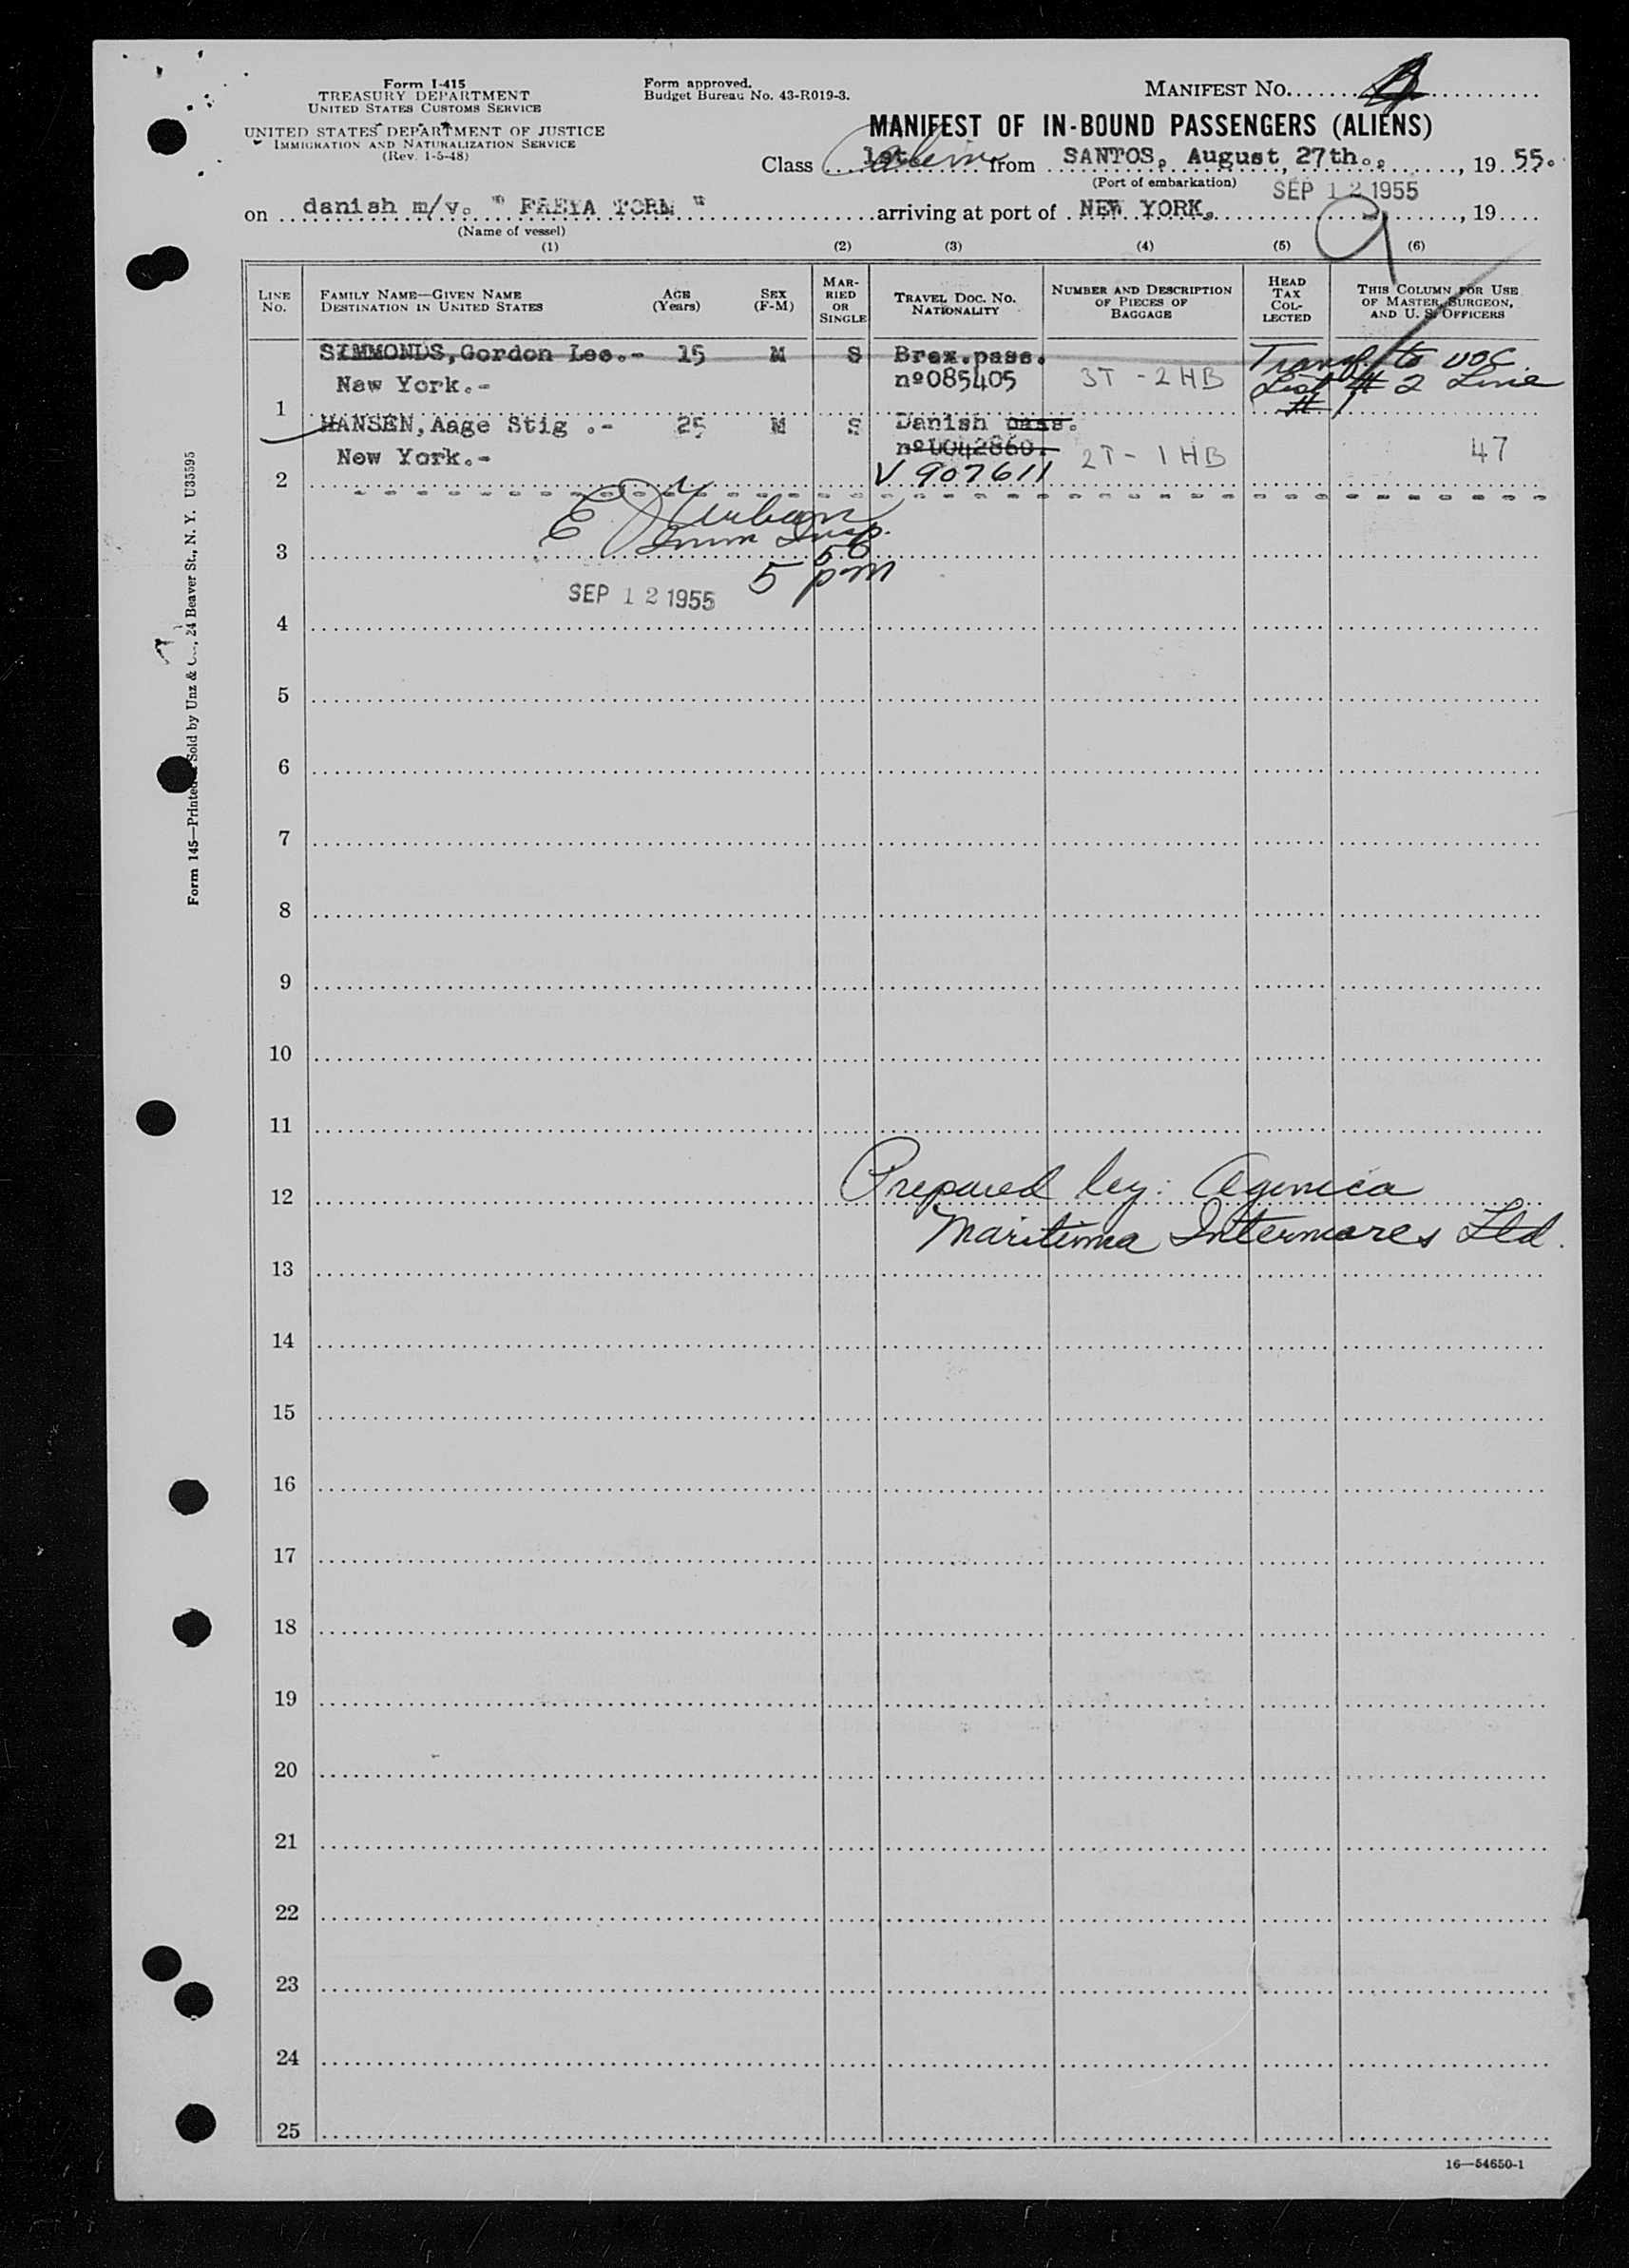 Form I-415
TREASURY DEPARTMENT
UNITED STATES CUSTOMS SERVICE
UNITED STATES DEPARTMENT OF JUSTICE
IMMIGRATION AND NATURALIZATION SERVICE
(Rev. 1-5-48)
Form approved.
Budget Bureau No. 43-R019-3.
MANIFEST No.
MANIFEST OF IN-BOUND PASSENGERS (ALIENS)
Class 1st. Cabin from SANTOS, August, 27th., 19 55.
(Port of embarkation) SEP 12 1955
on danish m/v. " FREYA TORM " arriving at port of NEW YORK, 19
(Name of vessel)
(1) (2) (3) (4) (5) (6)
LINE No. FAMILY NAME—GIVEN NAME DESTINATION IN UNITED STATES AGE (Years) SEX (F-M) MARRIED OR SINGLE TRAVEL DOC. No. NATIONALITY NUMBER AND DESCRIPTION OF PIECES OF BAGGAGE HEAD TAX COLLECTED THIS COLUMN FOR USE OF MASTER, SURGEON, AND U. S. OFFICERS
SIMMONDS, Gordon Lee.- 15 M S Brax.pass. Transf. to USC
New York.- nº085405 3T - 2HB List # 2 Line
1 # 1
HANSEN, Aage Stig .- 25 M S Danish pass.
New York.- nº0042860. 2T - 1HB 47
2 V 907611
E Urban
Imm Insp.
3 50
5 pm
SEP 12 1955
4
5
6
7
8
9
10
11
12 Prepared by: Agencia
Maritima Intermares Ltd.
13
14
15
16
17
18
19
20
21
22
23
24
25
16—54650-1
Form 145—Printed Sold by Unz & Co., 24 Beaver St., N. Y. U35595